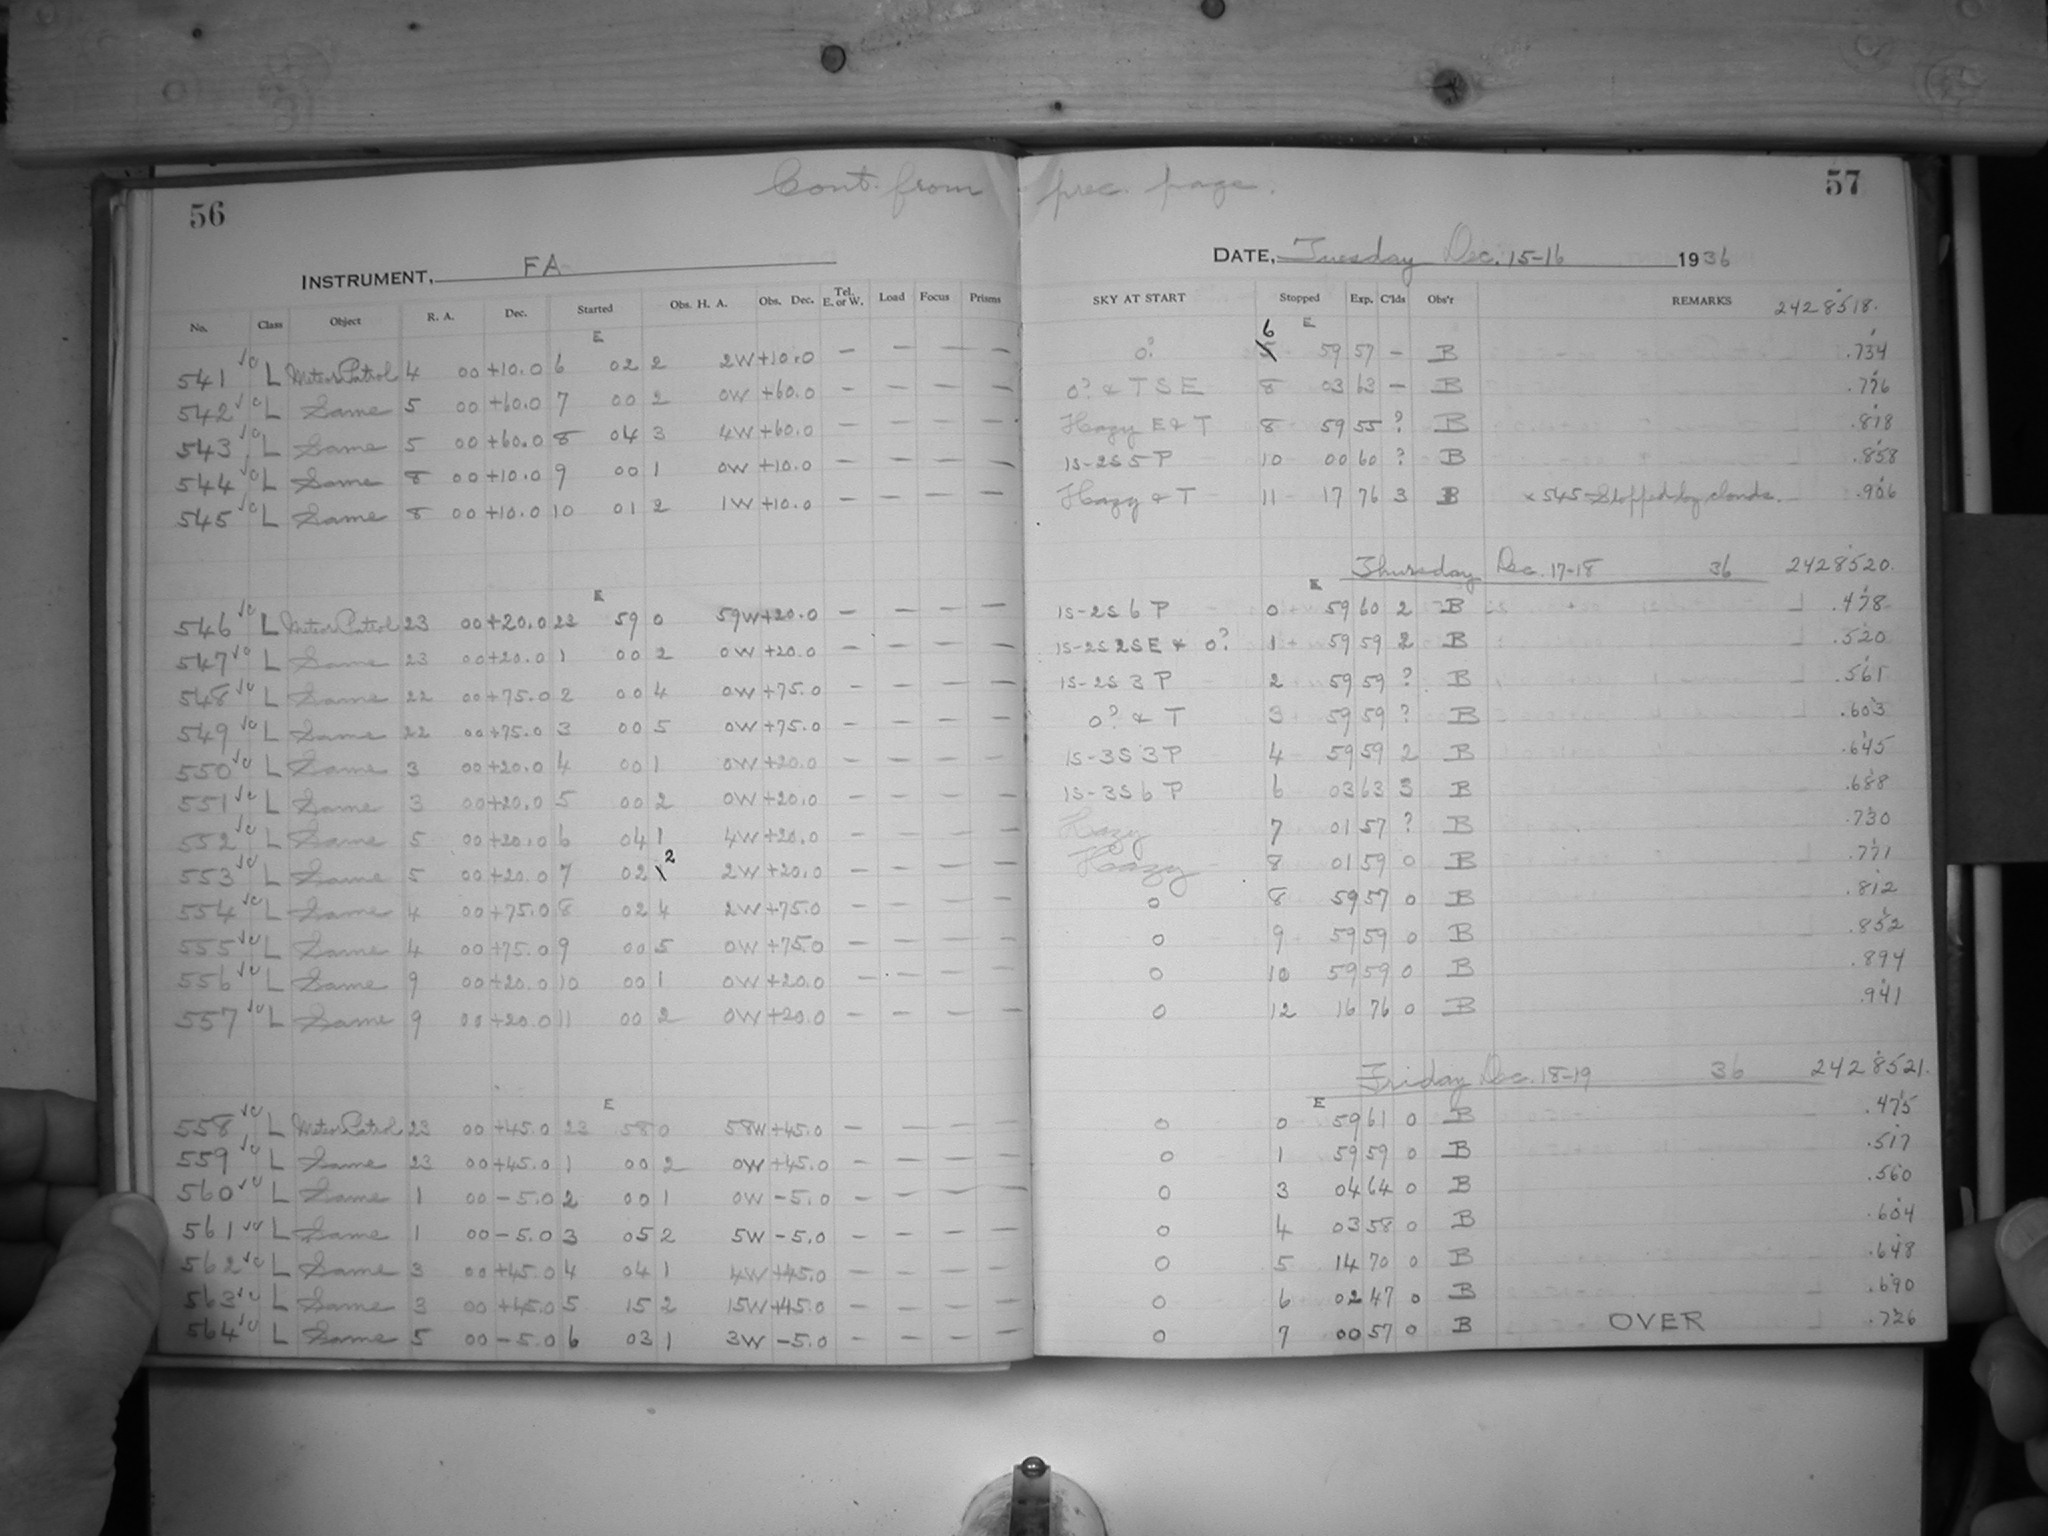 Cont. from prec. page.
56 57
INSTRUMENT, FA DATE, Tuesday Dec. 15-16 1936
No. Class Object R. A. Dec. Started Obs. H. A. Obs. Dec. Tel. E. or W. Load Focus Prisms SKY AT START Stopped Exp. C'lds Obs'r REMARKS 2428518.
E 6 E
541 L Meteor Patrol 4 00 +10.0 6 02 2 2W +10.0 — — — — 0? 5 59 57 — B .734
542 L Same 5 00 +60.0 7 00 2 0W +60.0 — — — — 0? & T S E 8 03 63 — B .776
543 L Same 5 00 +60.0 8 04 3 4W +60.0 — — — — Hazy E & T 8 59 55 ? B .818
544 L Same 8 00 +10.0 9 00 1 0W +10.0 — — — — 1S-2S 5 P 10 00 60 ? B .858
545 L Same 8 00 +10.0 10 01 2 1W +10.0 — — — — Hazy & T 11 17 76 3 B × 545 - Stopped by clouds. .906
Thursday Dec. 17-18 36 2428520.
E E
546 L Meteor Patrol 23 00 +20.0 23 59 0 59W +20.0 — — — — 1S-2S 6 P 0 59 60 2 B .478
547 L Same 23 00 +20.0 1 00 2 0W +20.0 — — — — 1S-2S 2SE & 0? 1 59 59 2 B .520
548 L Same 22 00 +75.0 2 00 4 0W +75.0 — — — — 1S-2S 3 P 2 59 59 ? B .561
549 L Same 22 00 +75.0 3 00 5 0W +75.0 — — — — 0? & T 3 59 59 ? B .603
550 L Same 3 00 +20.0 4 00 1 0W +20.0 — — — — 1S-3S 3 P 4 59 59 2 B .645
551 L Same 3 00 +20.0 5 00 2 0W +20.0 — — — — 1S-3S 6 P 6 03 63 3 B .688
552 L Same 5 00 +20.0 6 04 1 4W +20.0 — — — — Hazy 7 01 57 ? B .730
553 L Same 5 00 +20.0 7 02 2 2W +20.0 — — — — Hazy 8 01 59 0 B .771
554 L Same 4 00 +75.0 8 02 4 2W +75.0 — — — — 0 8 59 57 0 B .812
555 L Same 4 00 +75.0 9 00 5 0W +75.0 — — — — 0 9 59 59 0 B .852
556 L Same 9 00 +20.0 10 00 1 0W +20.0 — — — — 0 10 59 59 0 B .894
557 L Same 9 00 +20.0 11 00 2 0W +20.0 — — — — 0 12 16 76 0 B .941
Friday Dec. 18-19 36 2428521.
E E
558 L Meteor Patrol 23 00 +45.0 23 58 0 58W +45.0 — — — — 0 0 59 61 0 B .475
559 L Same 23 00 +45.0 1 00 2 0W +45.0 — — — — 0 1 59 59 0 B .517
560 L Same 1 00 -5.0 2 00 1 0W -5.0 — — — — 0 3 04 64 0 B .560
561 L Same 1 00 -5.0 3 05 2 5W -5.0 — — — — 0 4 03 58 0 B .604
562 L Same 3 00 +45.0 4 04 1 4W +45.0 — — — — 0 5 14 70 0 B .648
563 L Same 3 00 +45.0 5 15 2 15W +45.0 — — — — 0 6 02 47 0 B .690
564 L Same 5 00 -5.0 6 03 1 3W -5.0 — — — — 0 7 00 57 0 B OVER .726